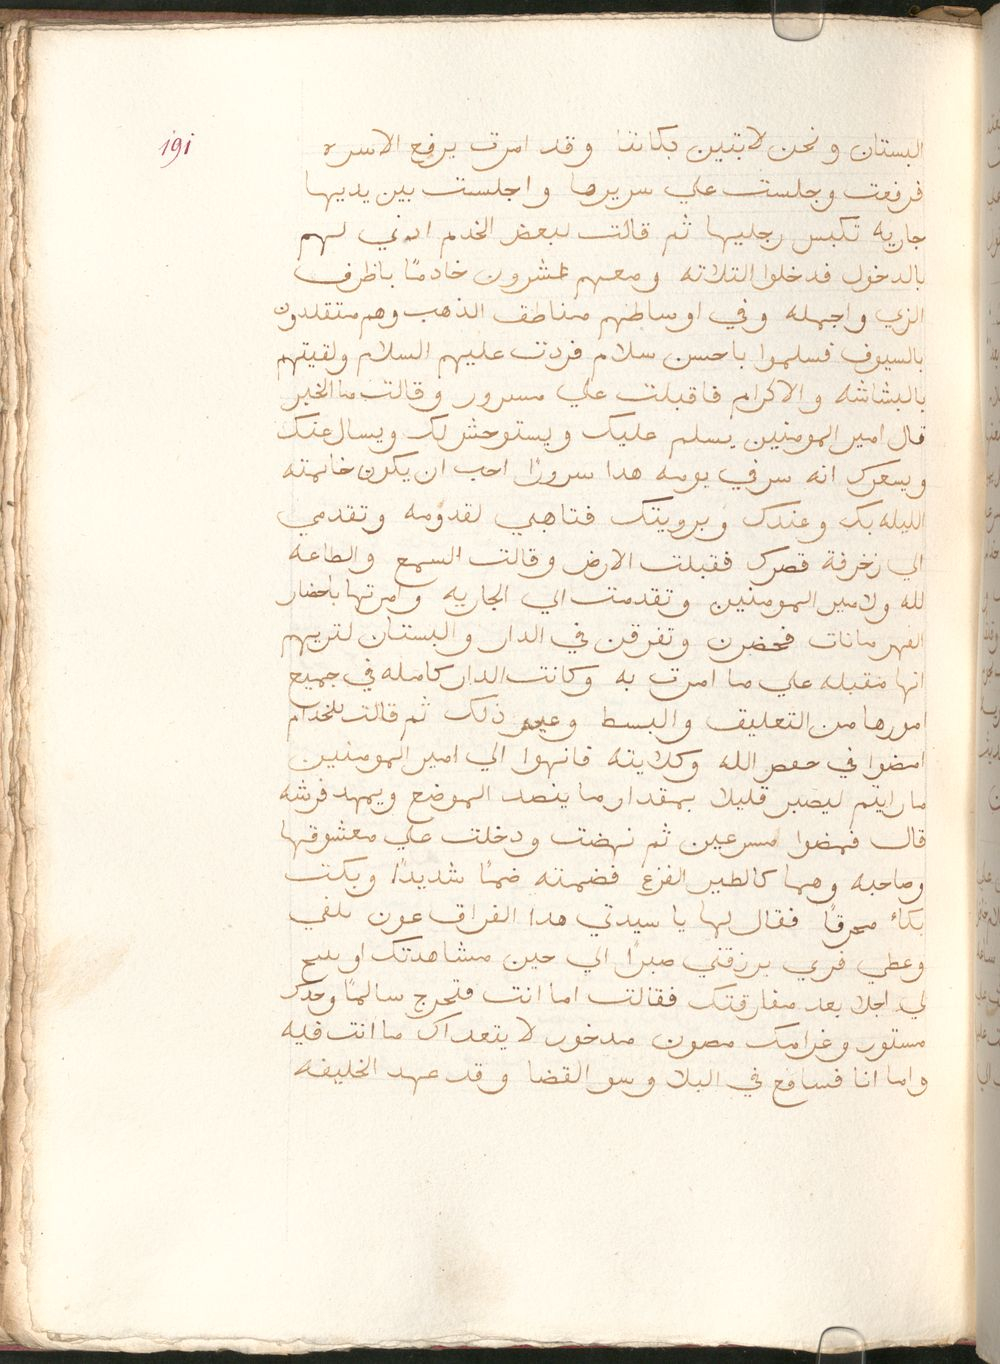 191
البستان ونحن لابتين بكاننا وقد امرت برفع الاسره
فرفعت وجلست علي سريرها واجلست بين يديها
جاريه تكبس رجليها ثم قالت لبعض الخدم ادني لهم
بالدخول فدخلوا التلاته ومعهم عشرون خادمًا باظرف
الزي واجمله وفي اوساطهم مناطق الذهب وهم متقلدون
بالسيوف فسلموا باحسن سلام فردت عليهم السلام ولقيتهم
بالبشاشه والاكرام فاقبلت علي مسرور وقالت ما الخبر
قال امير المومنين يسلم عليك ويستوحش لك ويسال عنك
ويعرك انه سر في يومه هدا سرورًا احب ان يكون خاتمته
الليله بك وعندك وبرويتك فتاهبي لقدومه وتقدمي
الي زخرفة قصرك فقبلت الارض وقالت السمع والطاعه
لله ولامير المومنين وتقدمت الي الجاريه وامرتها باحضار
القهرمانات فحضرن وتفرقن في الدار والبستان لتريهم
انها مقبله علي ما امرت به وكانت الدار كامله في جميع
امورها من التعليق والبسط وغير ذلك ثم قالت للخدام
امضوا في حفض الله وكلايته فانهوا الي امير المومنين
ما رايتم ليصبر قليلا بمقدار ما ينضد الموضع ويمهد فرشه
قال فمضوا مسرعين ثم نهضت ودخلت علي معشوقها
وصاحبه وهما كالطير الفزع فضمته ضمًا شديدًا وبكت
بكاء محرقًا فقال لها يا سيدتي هدا الفراق عون تلفي
وعطي فري يرزقني صبرًا الي حين مشاهدتك او
لي اجلا بعد مفارقتك فقالت اما انت فتخرج سالمًا وحدك
مستور وغرامك مصون مدخور لا يتعداك ما انت فيه
واما انا فساقع في البلا وسو القضا وقد عهد الخليفه